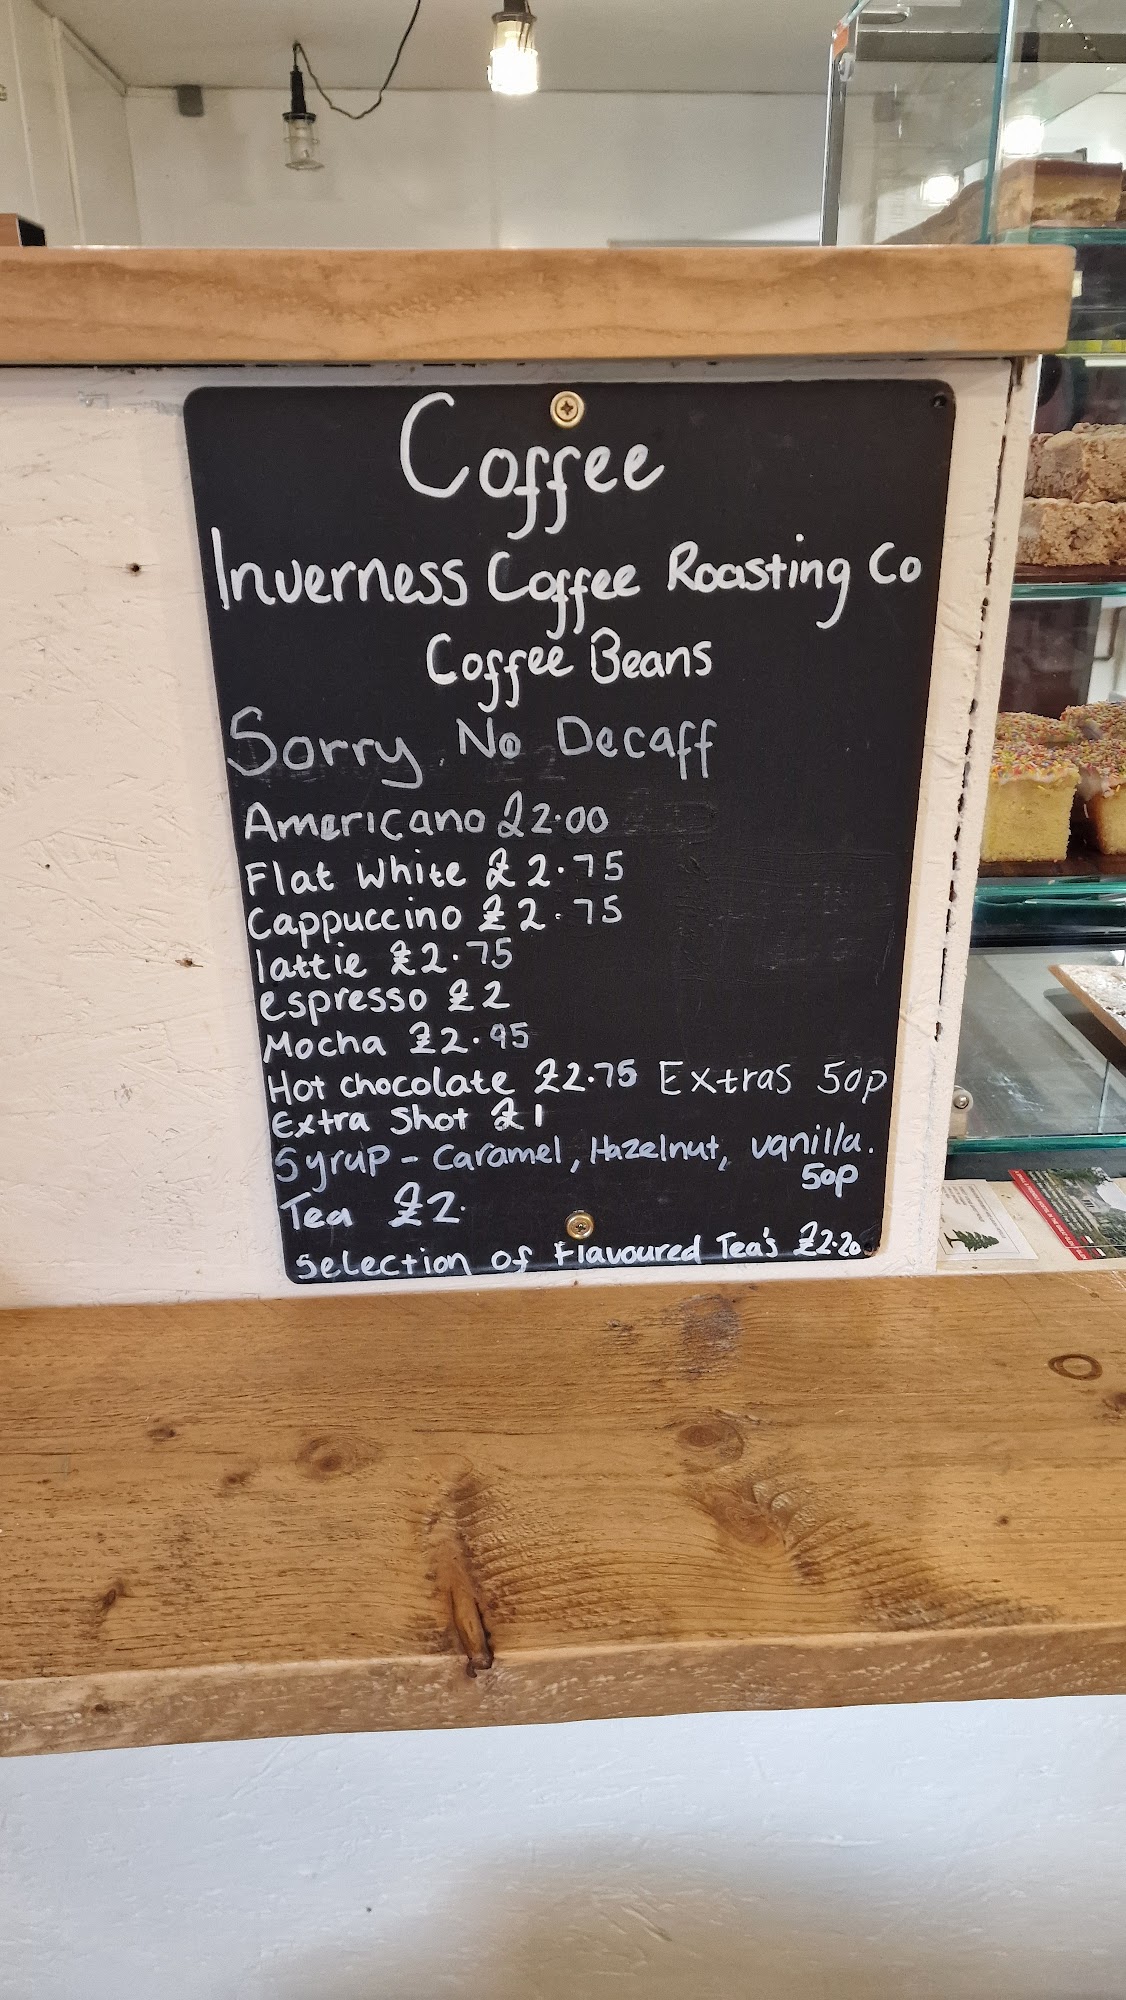 Coffee
Inverness Coffee Roasting Co
Coffee Beans
Sorry, No Decaff
Americano £2.00
Flat White £2.75
Cappuccino £2.75
lattie £2.75
espresso £2
Mocha £2.95
Hot chocolate £2.75 Extras 50p
Extra Shot £1
Syrup - Caramel, Hazelnut, vanilla.
50p
Tea £2.
Selection of Flavoured Tea's £2.20